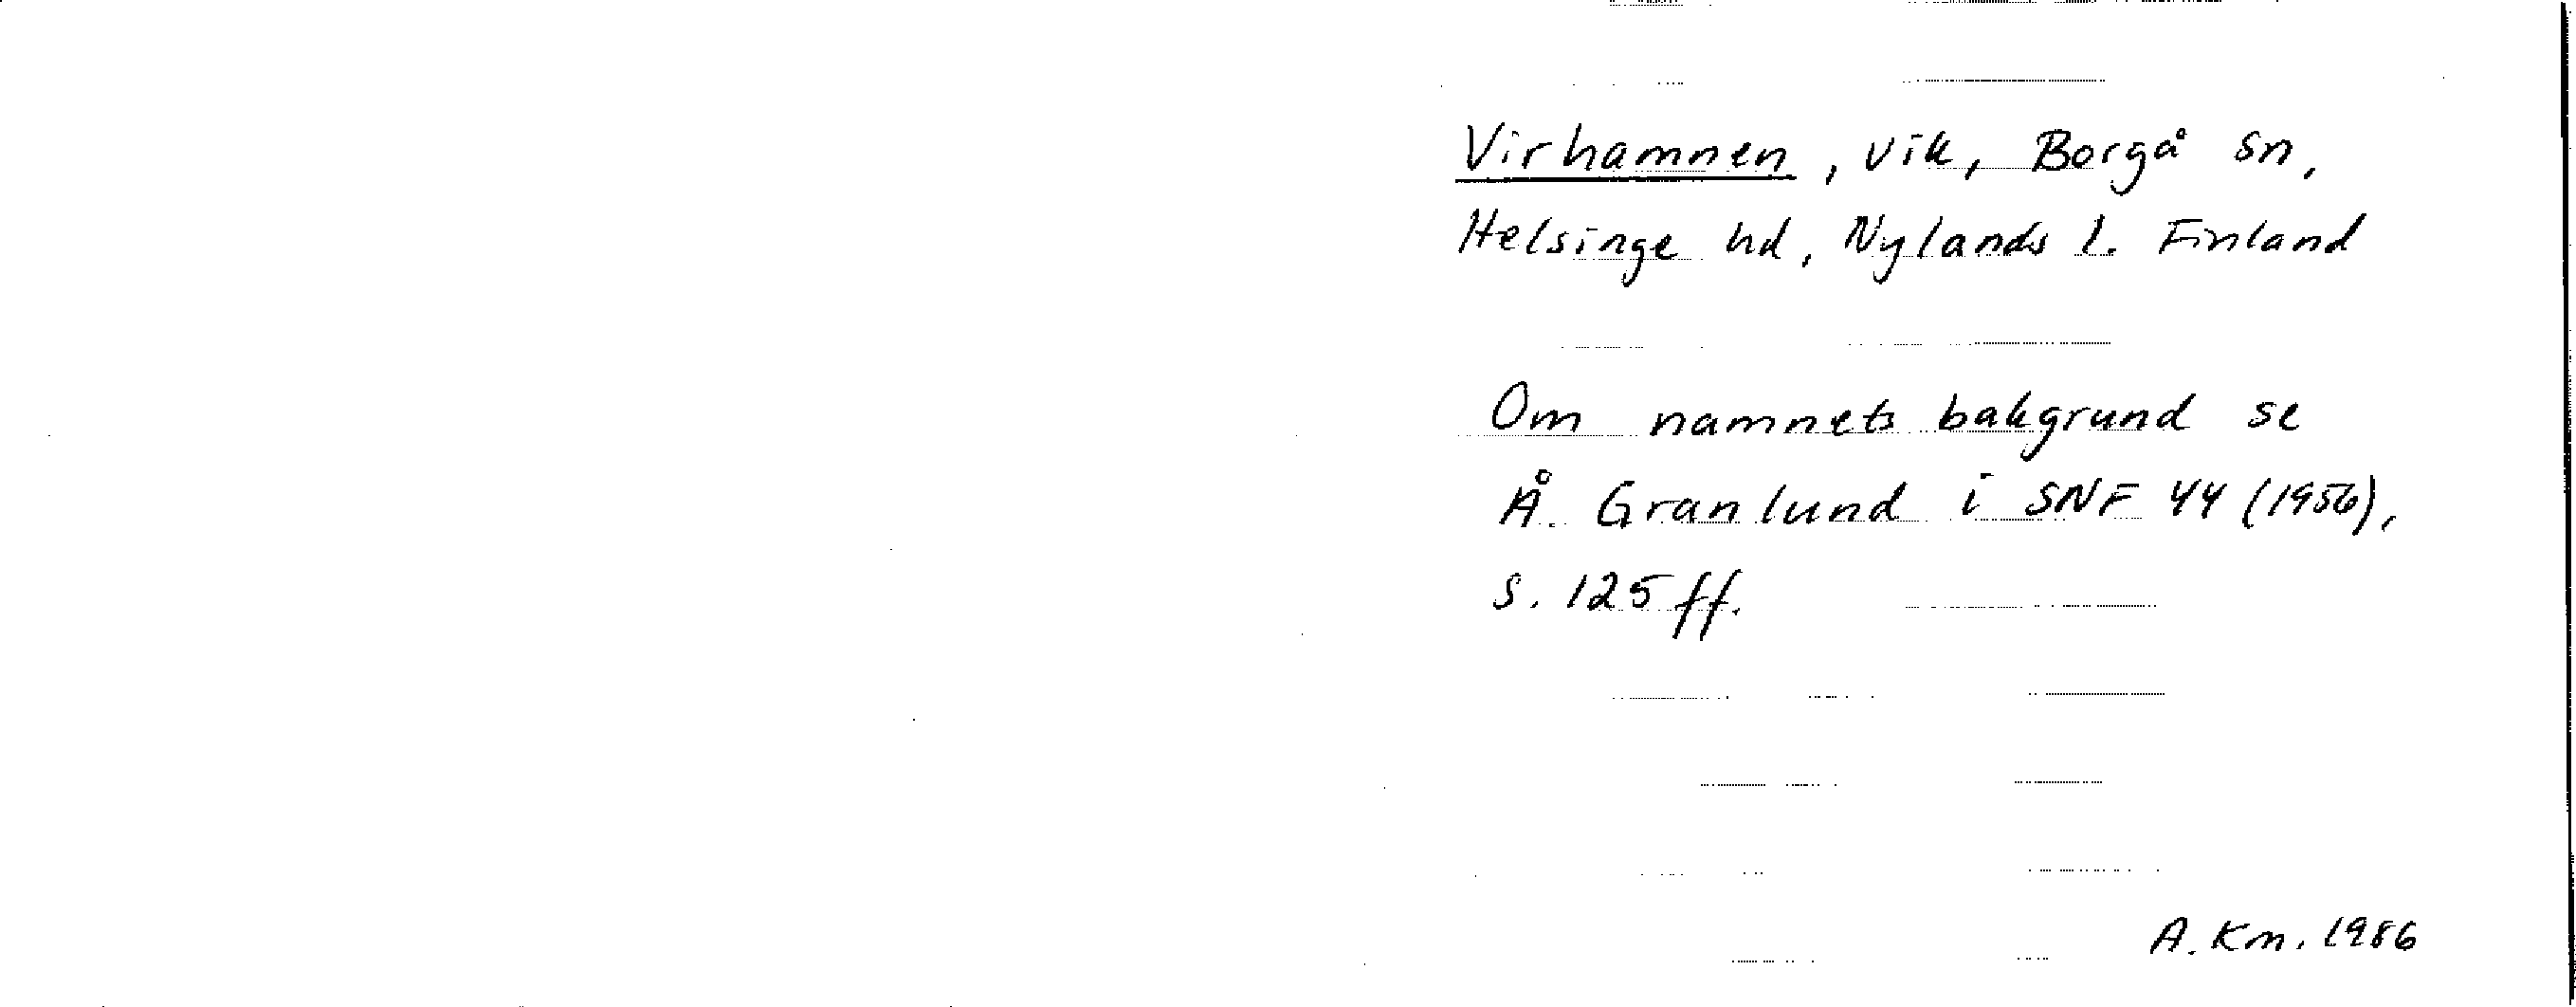 Virhamnen, vik, Borgå sn,
Helsinge hd, Nylands l. Finland
Om namnets bakgrund se
Å. Granlund i SNF 44 (1956),
s. 125 ff.
A. Km. 1986